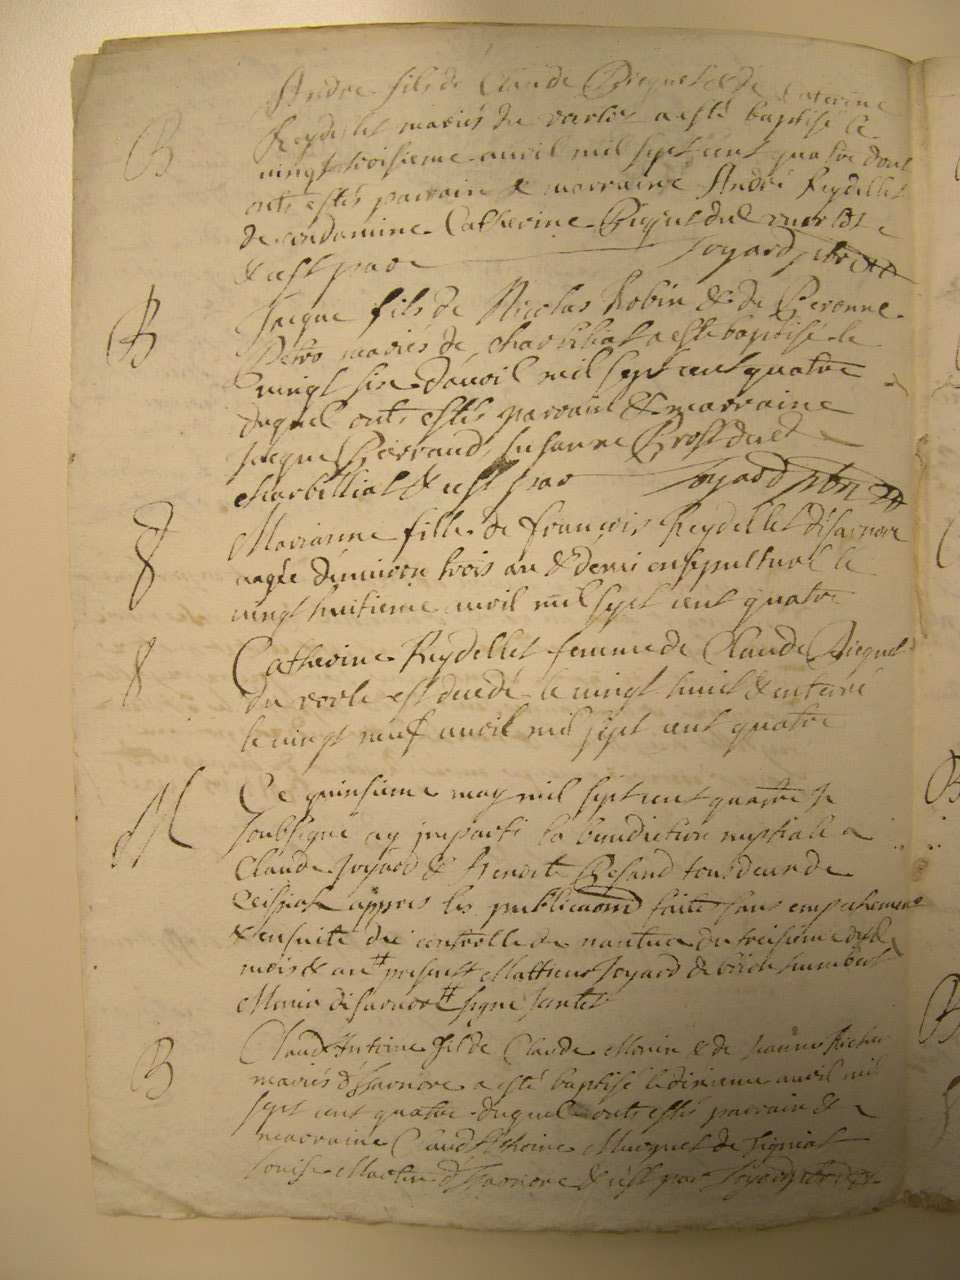 André fils de Claude Piequet & de Caterine
B Reydellet mariés du verloz a esté baptisé le
vingt troisieme avril mil sept cent quatre dont
onts estés parrain & marraine André Reydellet
de condamine Catherine Piequet du
& c'est par Joyard
B Jacque fils de Nicolas Robin & de Peronne
mariés de charbilliat a esté baptisé le
vingt six d'avril mil sept cent quatre
duquel onts estés parrain & marraine
Jacque Perraud Susanne Prost de
charbilliat & c'est par Joyard
Marianne fille de françois Reydellet d'isarnore
aagée d'environ trois an & demi ensepulturé le
vingt huitieme avril mil sept cent quatre
Catherine Reydellet femme de Claude Piequet
du verle est decedé le vingt huict & enterré
le vingt neuf avril mil sept cent quatre
M Ce quinsieme may mil sept cent quatre je
soubsigné ay imparti la benediction nuptiale a
Claude Joyard & Benoite tous deux de
appres les publications faite sans empechement
& ensuite du controlle de nantua du troisieme des
mois & an present Matthieu Joyard humbert
Morin d'isarnore signe
B Claud Antoine fil de Claude Morin & de Jeanne
mariés d'Isarnore a esté baptisé le dixieme avril mil
sept cent quatre duquel onts estés parrain &
marraine Claud Anthoine de
Louise Martin d'Isarnore & c'est par Joyard